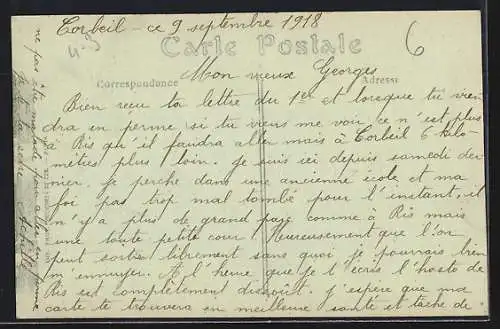 Corbeil - ce 9 septembre 1918
Carte Postale
6
Correspondance
Adresse
Mon vieux Georges
Bien reçu ta lettre du 1er et lorsque tu vien
dra en perme si tu viens me voir ce n'est plus
à Ris qu'il faudra aller mais à Corbeil 6 kilo
mètres plus loin. Je suis ici depuis samedi der
nier. Je perche dans une ancienne école et ma
foi pas trop mal tombé pour l'instant, il
n'y a plus de grand parc comme à Ris mais
une toute petite cour. Heureusement que l'on
peut sortir librement sans quoi je pourrais bien
m'ennuyer. A l'heure que je t'écris l'hosto de
Ris est complètement dissout. J'espère que ma
carte te trouvera en meilleure santé et tâche de
ne pas être malade pour aller en perme
Achille